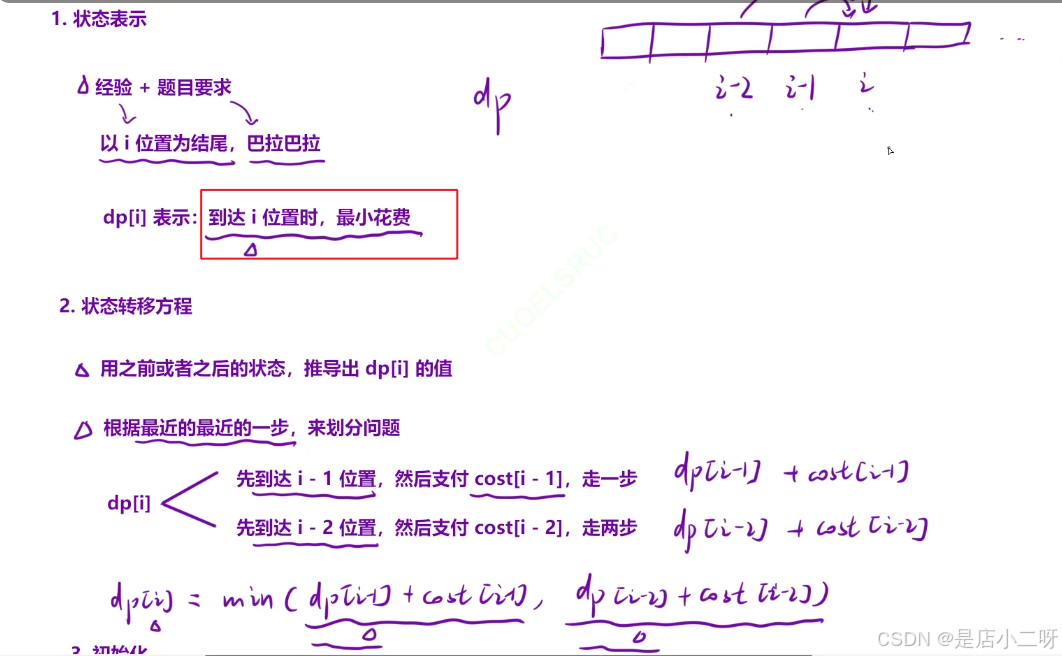 1. 状态表示
经验 + 题目要求
以 i 位置为结尾，巴拉巴拉
dp
i-2 i-1 i
dp[i] 表示：到达 i 位置时，最小花费
CUOELSRUC
2. 状态转移方程
用之前或者之后的状态，推导出 dp[i] 的值
根据最近的最近的一步，来划分问题
dp[i]
先到达 i - 1 位置，然后支付 cost[i - 1]，走一步 dp[i-1] + cost[i-1]
先到达 i - 2 位置，然后支付 cost[i - 2]，走两步 dp[i-2] + cost[i-2]
dp[i] = min ( dp[i-1] + cost[i-1], dp[i-2] + cost[i-2])
3. 初始化
CSDN @是店小二呀